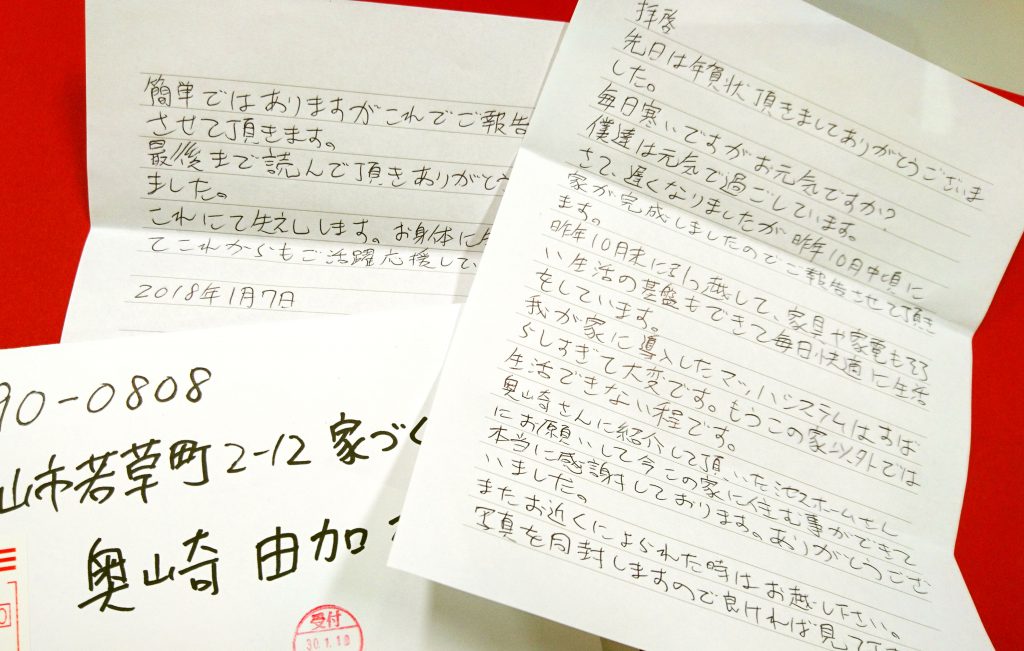 拝啓
先日は年賀状頂きましてありがとうございま
した。
毎日寒いですがお元気ですか?
僕達は元気で過ごしています。
さて、遅くなりましたが昨年10月中頃に
家が完成しましたのでご報告させて頂き
ます。
昨年10月末に引っ越して、家具や家電もそろ
い生活の基盤もできて毎日快適に生活
をしています。
我が家に導入したマッハシステムはすば
らしすぎて大変です。もうこの家以外では
生活できない程です。
奥山崎さんに紹介して頂いた池スホームさん
にお願いして今この家に住む事ができて
本当に感謝しております。ありがとうござ
いました。
またお近くによられた時はお越し下さい。
写真を同封しますので良ければ見て下さ
簡単ではありますがこれでご報告
させて頂きます。
最後まで読んで頂きありがとう
ました。
これにて失礼します。お身体に
てこれからもご活躍応援して、
2018年1月7日
90-0808
山市若草町2-12 家づく
奥山崎 由加
受付
30.1.10